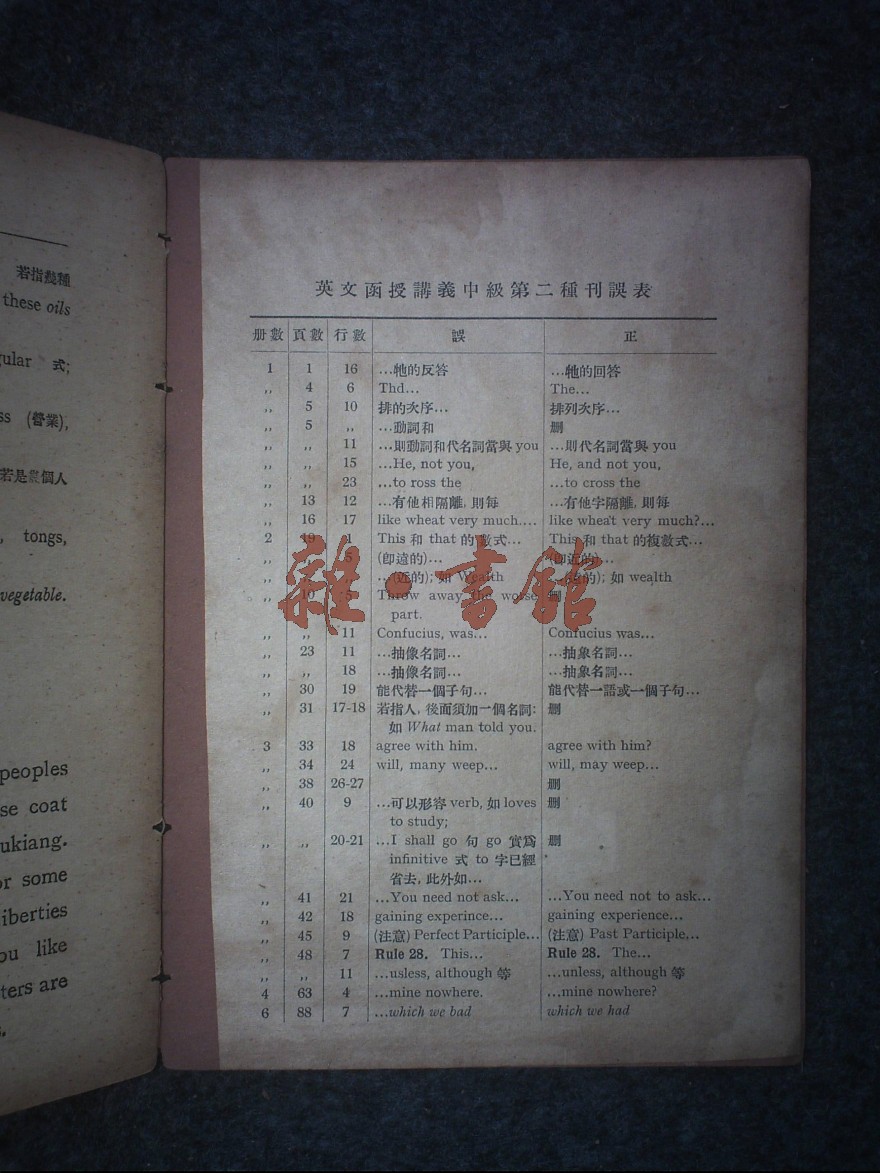 若指幾種
these oils
gular 式;
ss (營業),
若是叢個人
, tongs,
vegetable.
peoples
se coat
ukiang.
or some
liberties
ou like
ters are
s.
英文函授講義中級第二種刊誤表
册數 頁數 行數 誤 正
1 1 16 …牠的反答 …牠的回答
,, 4 6 Thd… The…
,, 5 10 排的次序… 排列次序…
,, 5 ,, …動詞和 删
,, ,, 11 …則動詞和代名詞當與 you …則代名詞當與 you
,, ,, 15 …He, not you, He, and not you,
,, ,, 23 …to ross the …to cross the
,, 13 12 …有他相隔離, 則每 …有他字隔離, 則每
,, 16 17 like wheat very much.… like wheat very much?…
2 19 1 This 和 that 的 數式… This 和 that 的複數式…
,, 5 (卽遠的)… (卽近的)…
,, …(近的); 如 Wealth 的); 如 wealth
,, 10 5 Throw away the worse 删
part.
,, ,, 11 Confucius, was… Confucius was…
,, 23 11 …抽像名詞… …抽象名詞…
,, ,, 18 …抽像名詞… …抽象名詞…
,, 30 19 能代替一個子句… 能代替一語或一個子句…
,, 31 17-18 若指人, 後面須加一個名詞: 删
如 What man told you.
3 33 18 agree with him. agree with him?
,, 34 24 will, many weep… will, may weep…
,, 38 26-27 删
,, 40 9 …可以形容 verb, 如 loves 删
to study;
,, ,, 20-21 …I shall go 句 go 實爲 删
infinitive 式 to 字已經
省去, 此外如…
,, 41 21 …You need not ask… …You need not to ask…
,, 42 18 gaining experince… gaining experience…
,, 45 9 (注意) Perfect Participle… (注意) Past Participle…
,, 48 7 Rule 28. This… Rule 28. The…
,, ,, 11 …usless, although 等 …unless, although 等
4 63 4 …mine nowhere. …mine nowhere?
6 88 7 …which we bad which we had
雜·書館